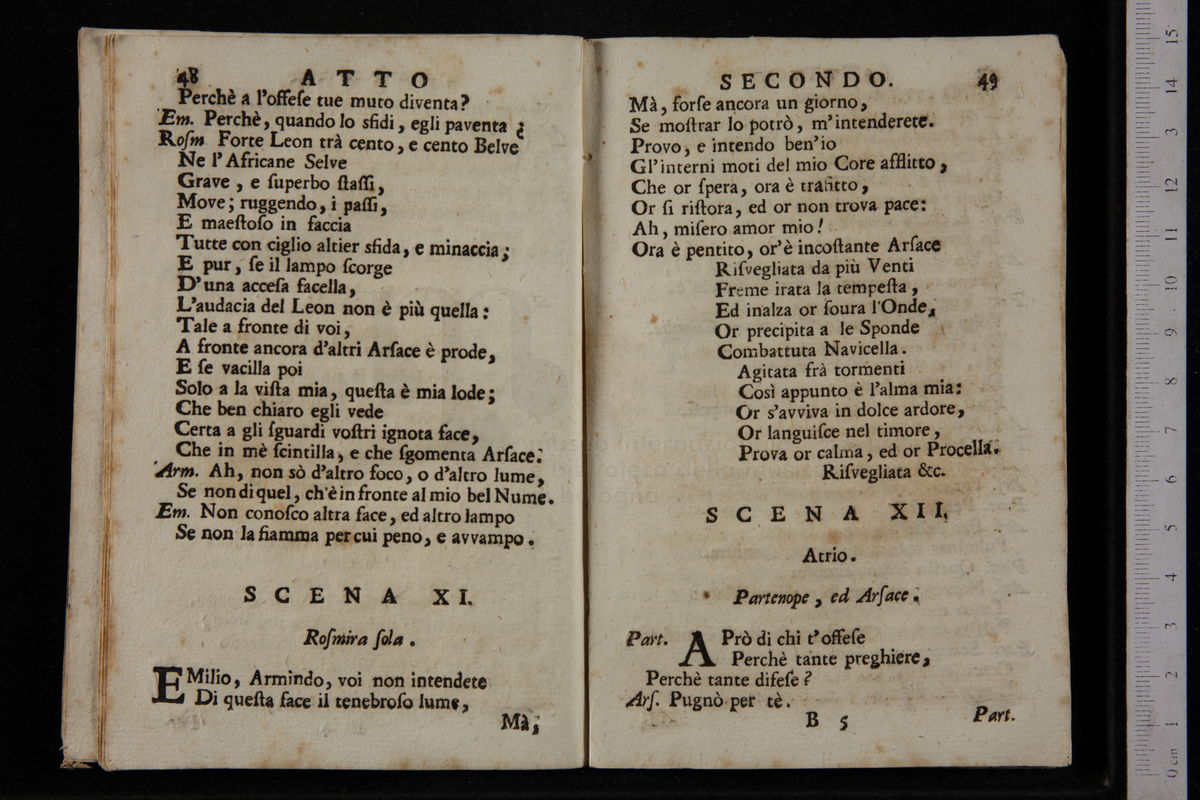 48 ATTO
Perchè a l'offeſe tue muto diventa?
Em. Perchè, quando lo sfidi, egli paventa ¿
Roſm Forte Leon trà cento, e cento Belve
Ne l'Africane Selve
Grave, e ſuperbo ſtaſſi,
Move; ruggendo, i paſſi,
E maeſtoſo in faccia
Tutte con ciglio altier sfida, e minaccia;
E pur, ſe il lampo ſcorge
D'una acceſa facella,
L'audacia del Leon non è più quella:
Tale a fronte di voi,
A fronte ancora d'altri Arſace è prode,
E ſe vacilla poi
Solo a la viſta mia, queſta è mia lode;
Che ben chiaro egli vede
Certa a gli ſguardi voſtri ignota face,
Che in mè ſcintilla, e che ſgomenta Arſace.
Arm. Ah, non sò d'altro foco, o d'altro lume,
Se non di quel, ch'è in fronte al mio bel Nume.
Em. Non conoſco altra face, ed altro lampo
Se non la fiamma per cui peno, e avvampo.
SCENA XI.
Roſmira ſola.
EMilio, Armindo, voi non intendete
Di queſta face il tenebroſo lume,
Mà;
SECONDO. 49
Mà, forſe ancora un giorno,
Se moſtrar lo potrò, m'intenderete.
Provo, e intendo ben'io
Gl'interni moti del mio Core afflitto,
Che or ſpera, ora è trafitto,
Or ſi riſtora, ed or non trova pace:
Ah, miſero amor mio!
Ora è pentito, or'è incoſtante Arſace
Riſvegliata da più Venti
Freme irata la tempeſta,
Ed inalza or ſoura l'Onde,
Or precipita a le Sponde
Combattuta Navicella.
Agitata frà tormenti
Così appunto è l'alma mia:
Or s'avviva in dolce ardore,
Or languiſce nel timore,
Prova or calma, ed or Procella.
Riſvegliata &c.
SCENA XII.
Atrio.
Partenope, ed Arſace.
Part. APrò di chi t'offeſe
Perchè tante preghiere,
Perchè tante difeſe?
Arſ. Pugnò per tè.
B 5
Part.
0 cm 1 2 3 4 5 6 7 8 9 10 11 12 13 14 15